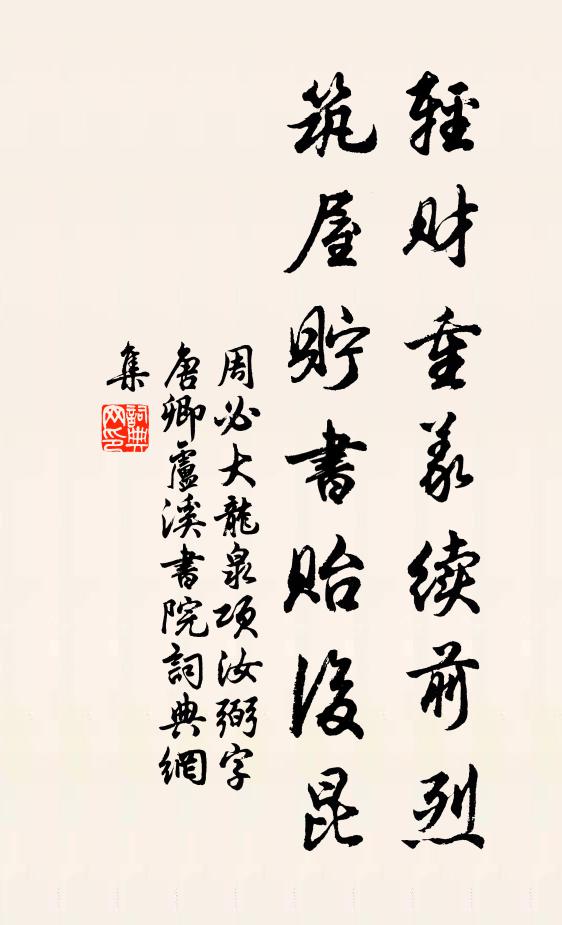 輕財重義續前烈
筑屋貯書貽後昆
周必大龍泉項汝弼字
唐卿盧溪書院詞典網
集
詞典网印